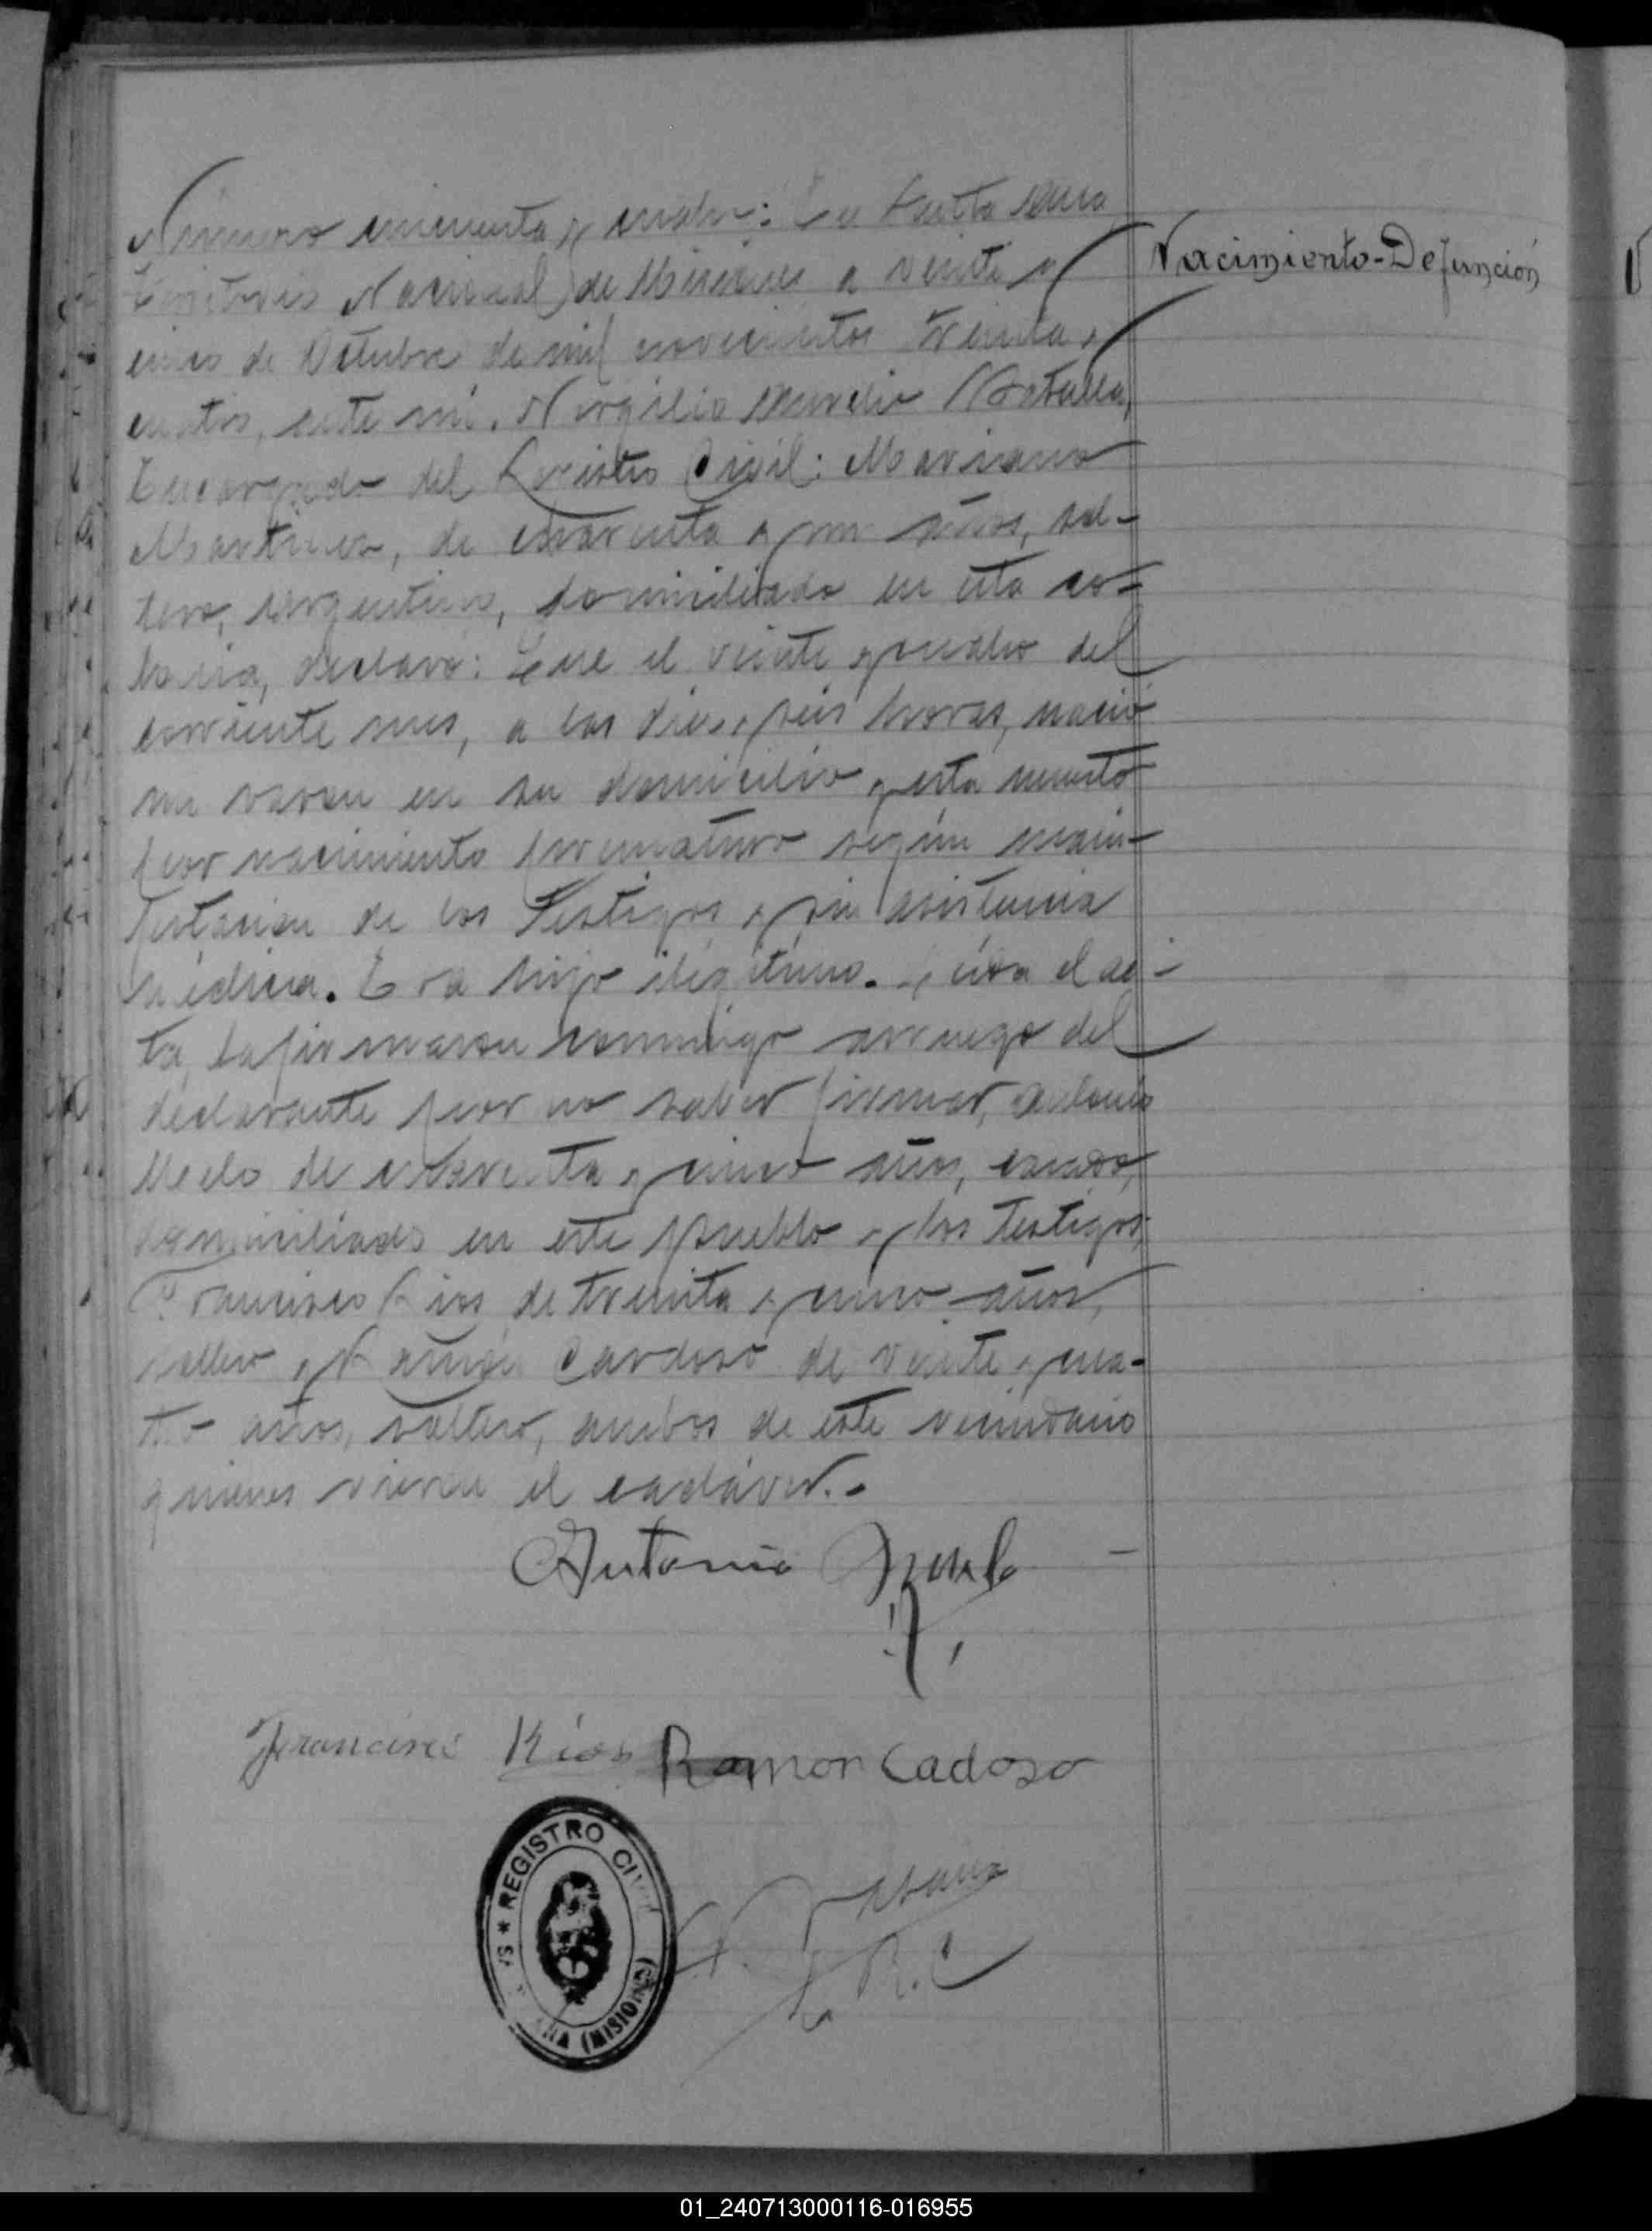 Número cincuenta y cuatro: En Santa Ana
Nacimiento-Defunción
Territorio Nacional de Misiones a veinte y
cinco de Octubre de mil novecientos treinta y
cuatro, ante mí, Virgilio Amelio
Encargado del Registro Civil: Mariano
Martinez, de cuarenta y un años, sol-
tero, argentino, domiciliado en esta co-
lonia, declaró: Que el veinte y cuatro del
corriente mes, a las diez y seis horas, nació
un varon en su domicilio y esta muerto
por nacimiento prematuro según mani-
festacion de los Testigos y sin asistencia
médica. Era hijo ilegitimo. Leida el ac-
ta, la firmaron conmigo a ruego del
declarante por no saber firmar, Antonio
de cuarenta y cinco años, casado,
domiciliado en este pueblo y los Testigos;
Francisco Rios de treinta y cinco años,
soltero y Ramón Cardoso de veinte y cua-
tro años, soltero, ambos de este vecindario
quienes vieron el cadáver.-
Antonio
Francisco Ríos Ramon Cadoso
* REGISTRO CIVIL
ANA (MISIONES)
E. R. C
01_240713000116-016955